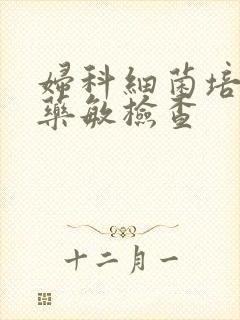 婦科細菌培
藥敏檢查
十二月一